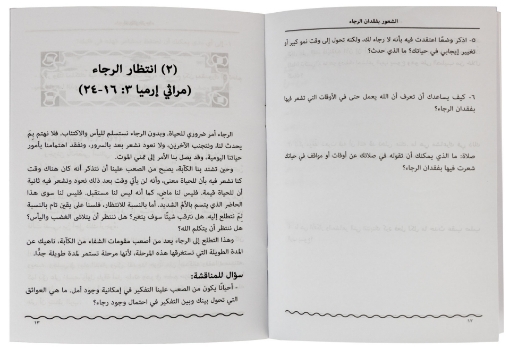 الشعور بفقدان الرجاء
٥- اذكر وضعًا اعتقدت فيه بأنه لا رجاء لك، ولكنه تحول إلى وقت نمو كبير أو
تغيير إيجابي في حياتك؟ ما الذي حدث؟
٦- كيف يساعدك أن تعرف أن الله يعمل حتى في الأوقات التي تشعر فيها
بفقدان الرجاء؟
صلاة: ما الذي يمكنك أن تقوله في صلاتك عن أوقات أو مواقف في حياتك
شعرت فيها بفقدان الرجاء؟
١٢
(٢) انتظار الرجاء
(مراثي إرميا ٣: ١٦-٢٤)
الرجاء أمر ضروري للحياة. وبدون الرجاء نستسلم لليأس والاكتئاب. فلا نهتم بمَ
يحدث لنا، ونتجنب الآخرين، ولا نعود نشعر بعد بالسرور، ونفقد اهتمامنا بأمور
حياتنا اليومية، وقد يصل بنا الأمر إلى تمني الموت.
وحين تشتد بنا الكآبة، يصبح من الصعب علينا أن نتذكر أنه كان هناك وقت
كنا نشعر فيه بأن للحياة معنى، وأنه لن يأتي وقت بعد ذلك نعود ونشعر فيه ثانية
أن للحياة قيمة. فليس لنا ماضٍ، كما أنه ليس لنا مستقبل. فليس لنا سوى هذا
الحاضر الذي يتسم بالألم الشديد. أما بالنسبة للانتظار، فلسنا على يقين تام بالنسبة
لِمَ نتطلع إليه. هل نترقب شيئًا سوف يتغير؟ هل ننتظر أن يتلاشى الغضب واليأس؟
هل ننتظر أن يتكلم الله؟
وهذا التطلع إلى الرجاء يعد من أصعب مقومات الشفاء من الكآبة، ناهيك عن
المدة الطويلة التي تستغرقها هذه المرحلة، لأنها مرحلة تستمر لمدة طويلة جدًّا.
سؤال للمناقشة:
- أحيانًا يكون من الصعب علينا التفكير في إمكانية وجود أمل. ما هي العوائق
التي تحول بينك وبين التفكير في احتمال وجود رجاء؟
١٣